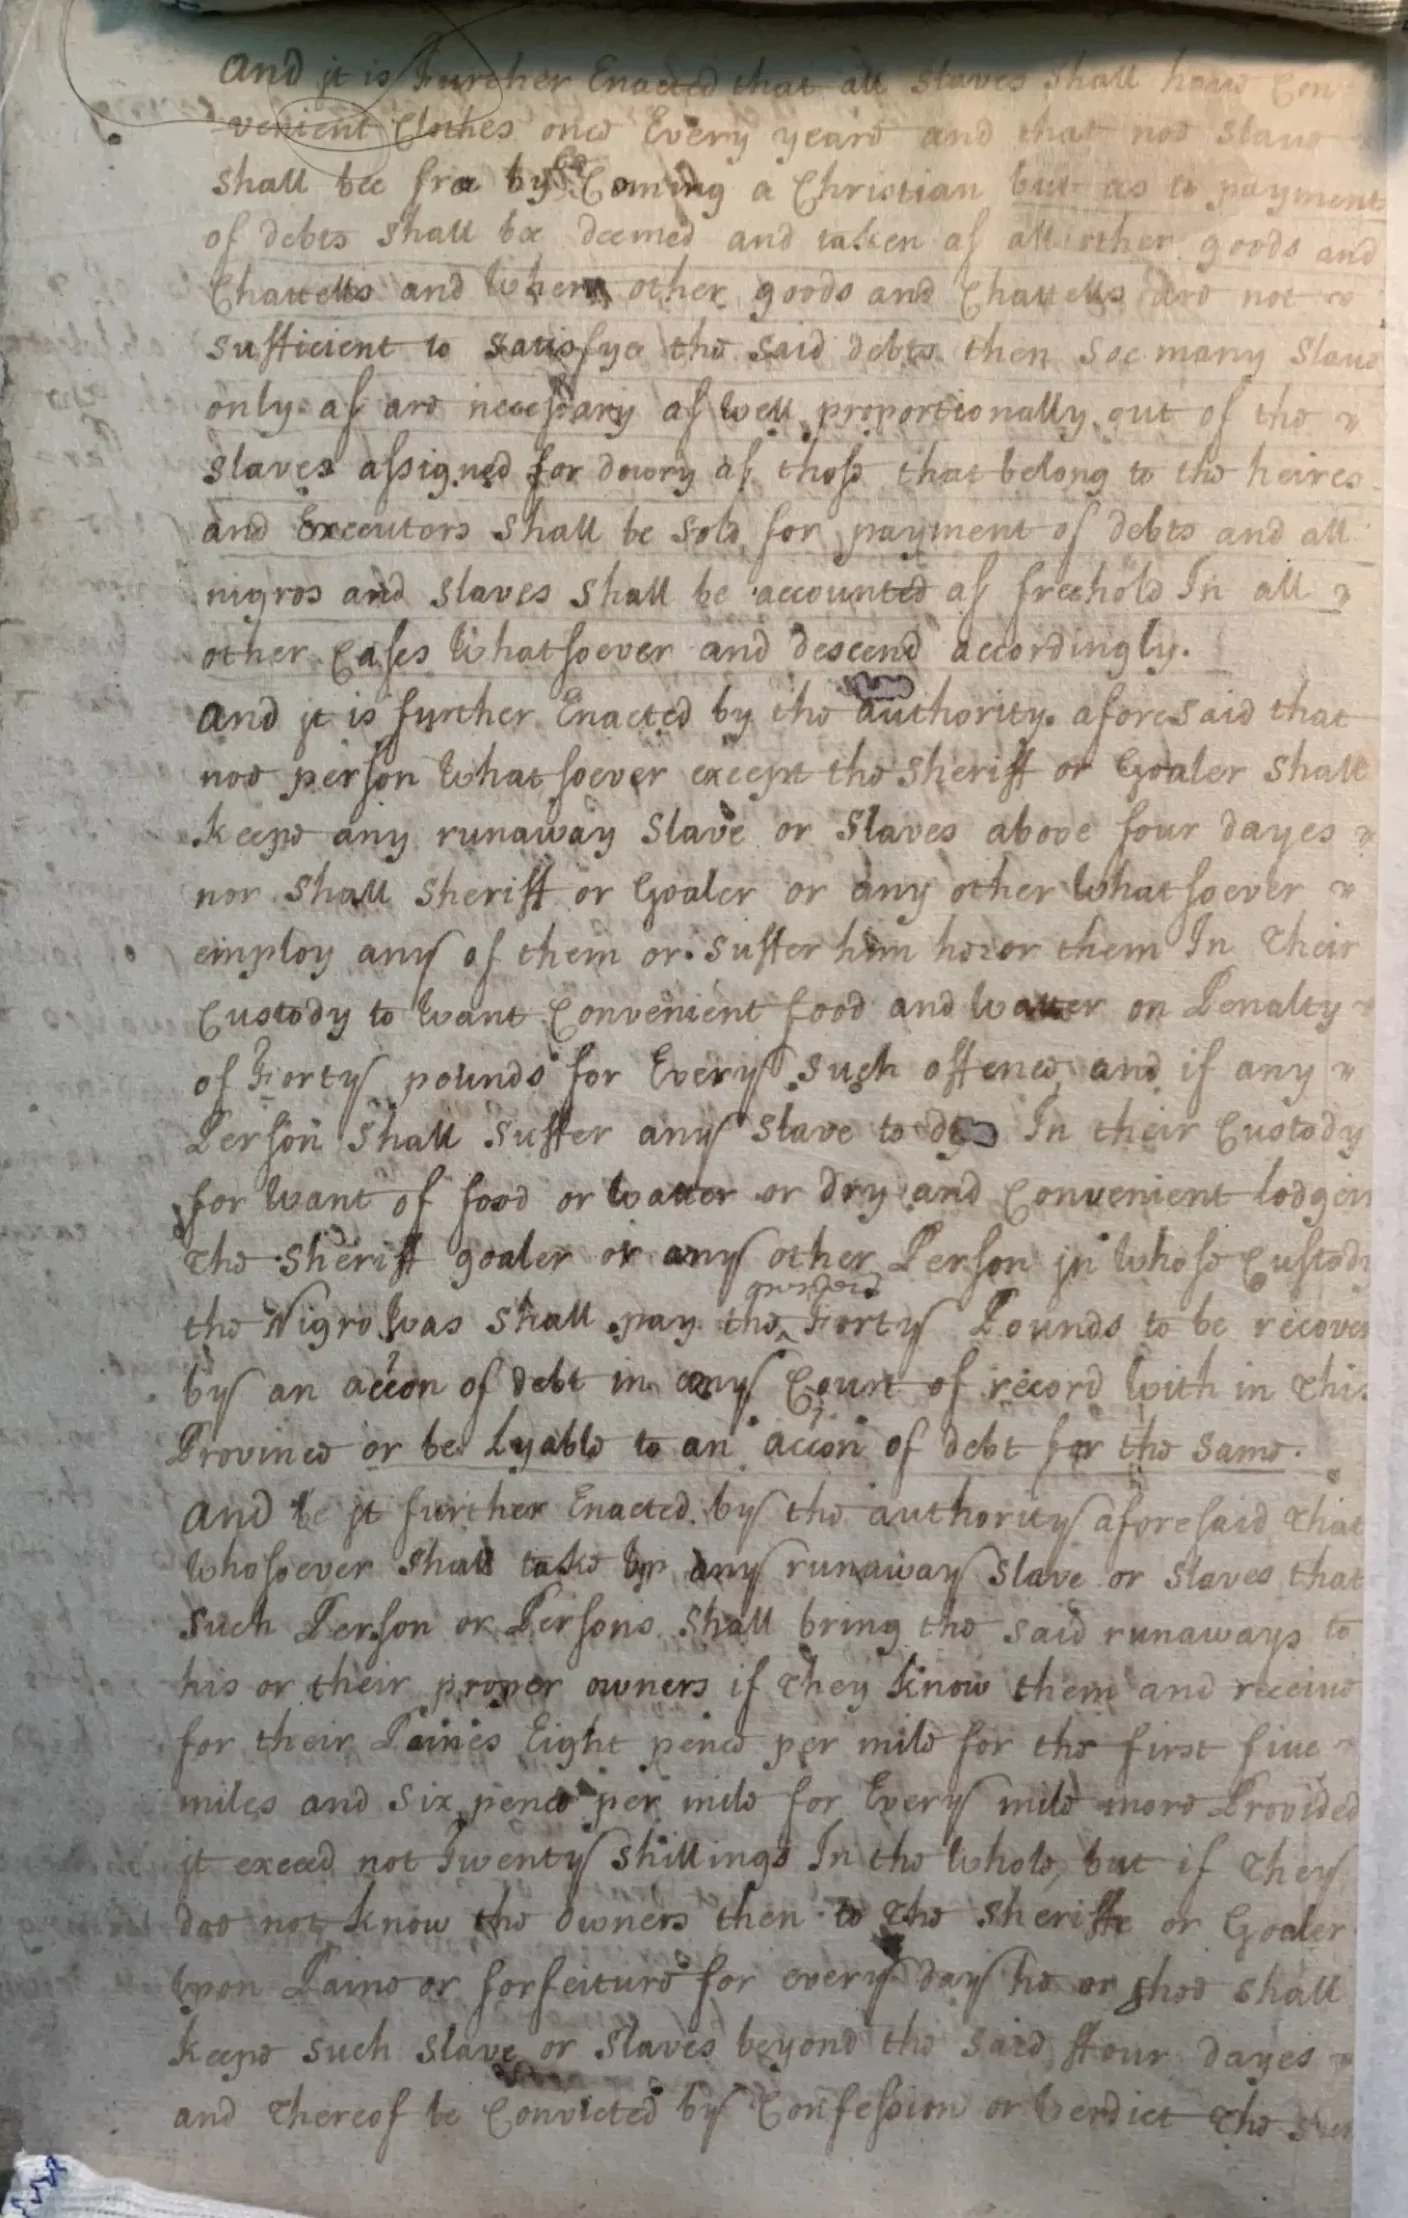 And it is Further Enacted that all slaves shall have Con
venient Clothes once Every yeare and that noe slave
shall bee free by beComing a Christian but as to payment
of debts shall bee deemed and taken as all other goods and
Chattells and Where other goods and Chattells are not
sufficient to satisfye the said debts then soe many slave
only as are necessary as Well proportionally out of the
slaves assigned for dowry as those that belong to the heires
and Executors shall be sold for payment of debts and all
nigros and slaves shall be accounted as freehold In all
other Cases Whatsoever and descend accordingly.
And it is further Enacted by the authority aforesaid that
noe person Whatsoever except the sheriff or Goaler shall
keepe any runaway slave or slaves above four dayes
nor shall sheriff or Goaler or any other Whatsoever
employ any of them or suffer him her or them In Their
Custody to Want Convenient food and Watter on Penalty
of Forty pounds for Every such offence and if any
Person shall suffer any slave to dy In their Custody
for Want of food or Watter or dry and Convenient Lodgein
The sheriff goaler or any other Person in Whose Custody
the Nigro Was shall pay the Forty Pounds to be recover
by an accon of debt in any Court of record With in This
Province or be Lyable to an accon of debt for the same.
And be it further Enacted by the authority aforesaid That
Whosoever shall take up any runaway slave or slaves that
such Person or Persons shall bring the said runaways to
his or their proper owners if They know them and receive
for their Paines Eight pence per mile for the first five
miles and six pence per mile for Every mile more Provided
it exceed not Twenty shillings In the Whole, but if They
doe not know the owners then to The sheriffe or Goaler
upon Paine or forfeiture for every day he or shee shall
keepe such slave or slaves beyond the said ffour dayes
and Thereof be Convicted by Confession or Verdict The